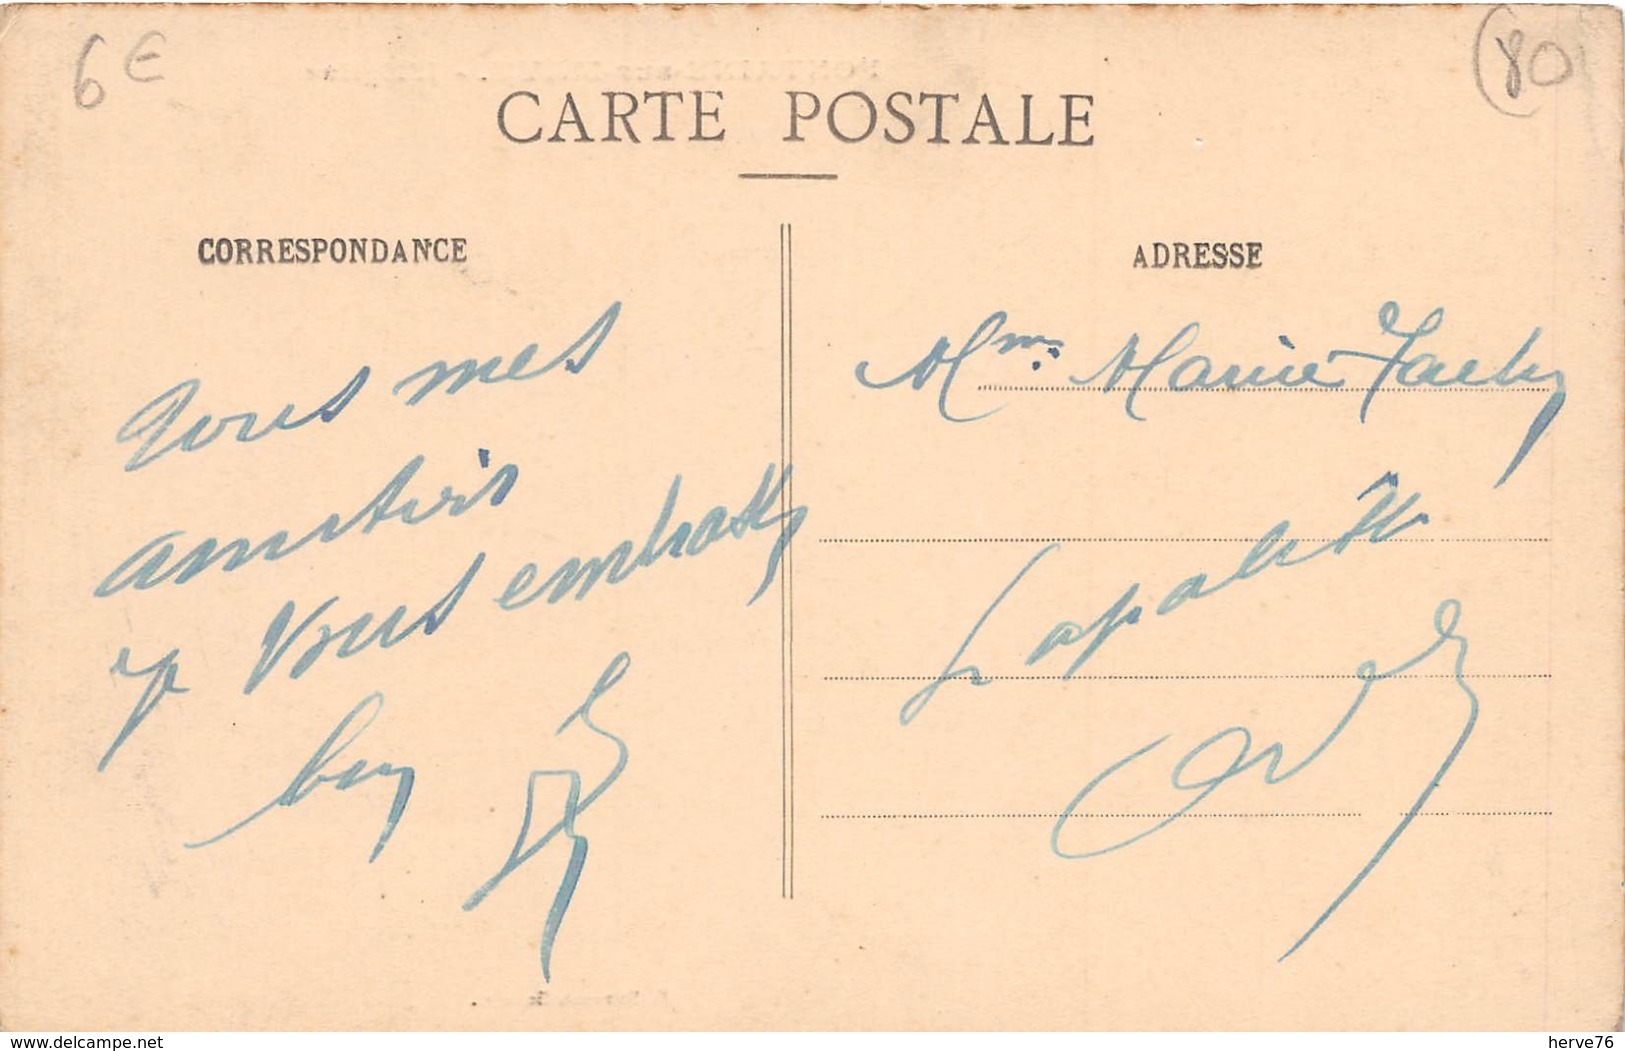 6 €
(80)
CARTE POSTALE
CORRESPONDANCE
ADRESSE
Tous mes
amitiés
je Vous embrasse
bien
Mme Marie Jacky
Lapalisse
www.delcampe.net
herve76